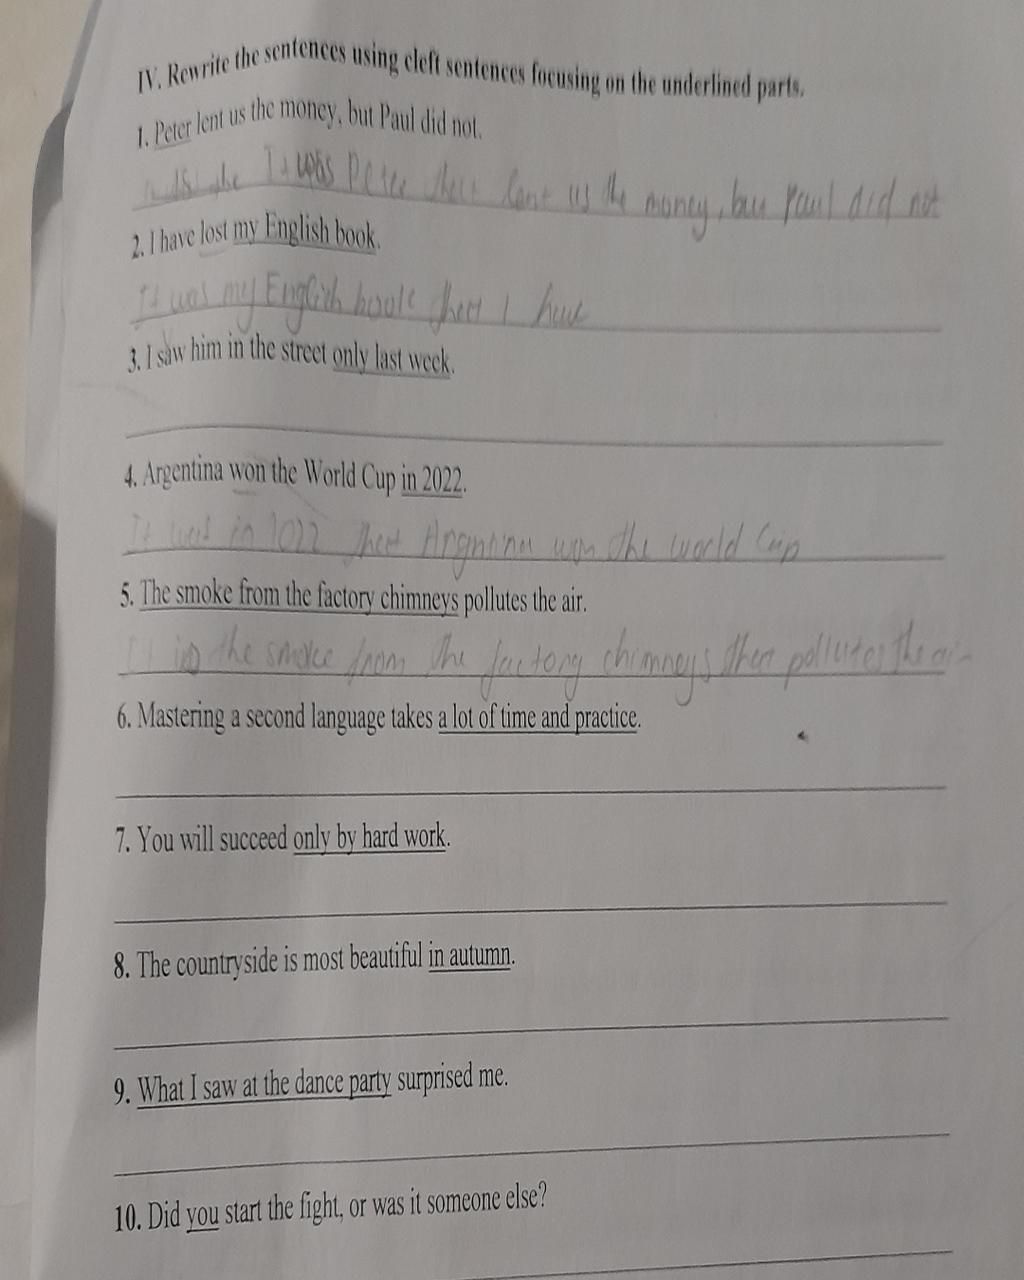 IV. Rewrite the sentences using cleft sentences focusing on the underlined parts.
1. Peter lent us the money, but Paul did not.
It was Peter that lent us the money, but Paul did not
2. I have lost my English book.
It was my English book that I have
3. I saw him in the street only last week.
4. Argentina won the World Cup in 2022.
It was in 2022 that Argentina won the world Cup
5. The smoke from the factory chimneys pollutes the air.
It is the smoke from the factory chimneys that pollutes the air
6. Mastering a second language takes a lot of time and practice.
7. You will succeed only by hard work.
8. The countryside is most beautiful in autumn.
9. What I saw at the dance party surprised me.
10. Did you start the fight, or was it someone else?